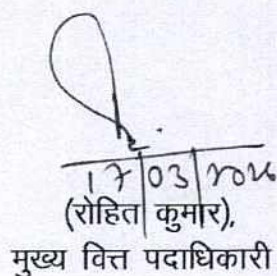 17/03/2026
(रोहित कुमार),
मुख्य वित्त पदाधिकारी